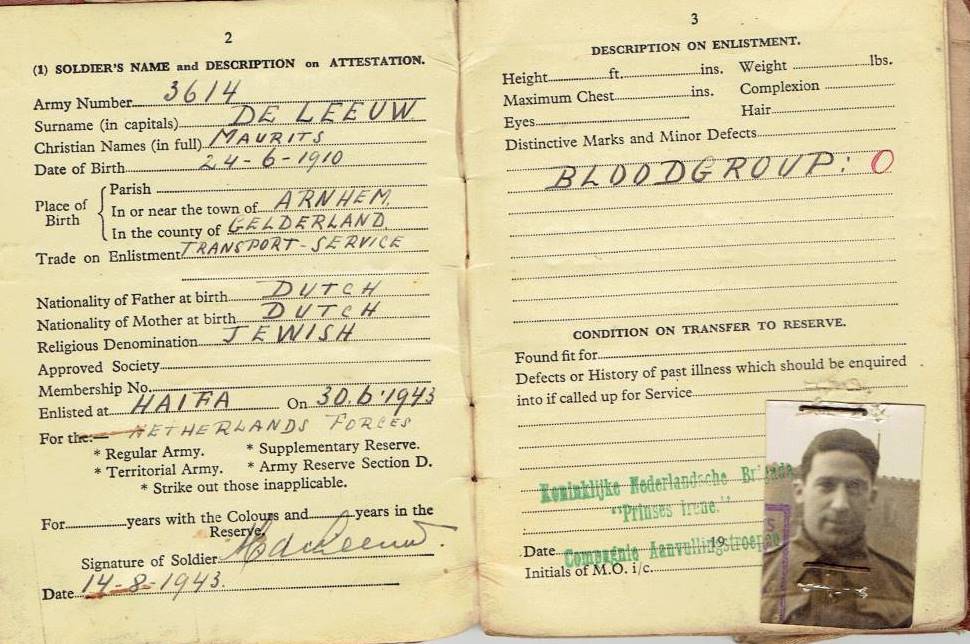 2
(1) SOLDIER'S NAME and DESCRIPTION on ATTESTATION.
Army Number 3614
Surname (in capitals) DE LEEUW
Christian Names (in full) MAURITS
Date of Birth 24-6-1910
Place of Birth
Parish
In or near the town of ARNHEM.
In the county of GELDERLAND
Trade on Enlistment TRANSPORT-SERVICE
Nationality of Father at birth DUTCH
Nationality of Mother at birth DUTCH
Religious Denomination JEWISH
Approved Society
Membership No.
Enlisted at HAIFA On 30.6.1943
For the:— NETHERLANDS FORCES
* Regular Army. * Supplementary Reserve.
* Territorial Army. * Army Reserve Section D.
* Strike out those inapplicable.
For years with the Colours and years in the
Reserve.
Signature of Soldier
Date 14-8-1943.
3
DESCRIPTION ON ENLISTMENT.
Height ft. ins. Weight lbs.
Maximum Chest ins. Complexion
Eyes Hair
Distinctive Marks and Minor Defects
BLOODGROUP: O
CONDITION ON TRANSFER TO RESERVE.
Found fit for
Defects or History of past illness which should be enquired
into if called up for Service
Koninklijke Nederlandsche Brigade
"Prinses Irene."
Date 19
Compagnie Aanvullingstroepen
Initials of M.O. i/c